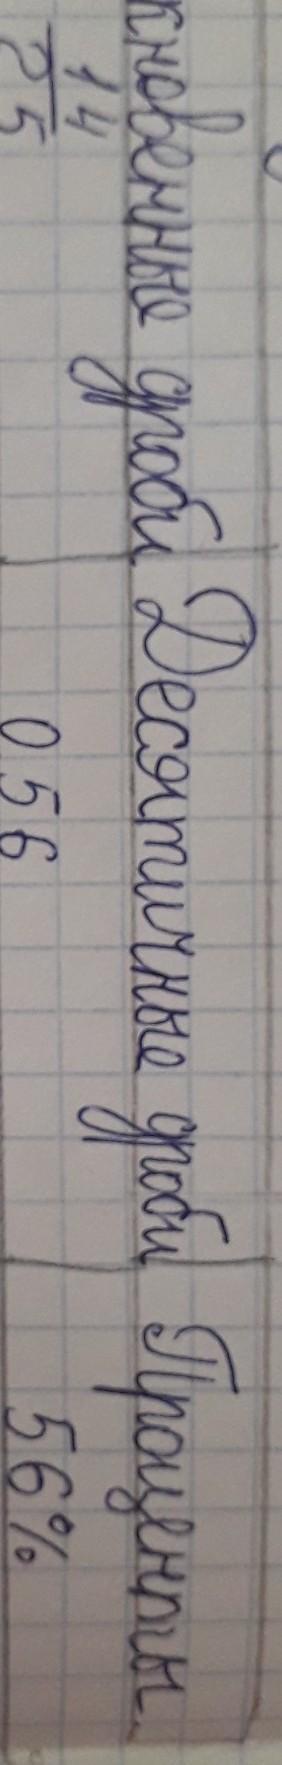 кновенные дроби Десятичные дроби Проценты
14 0 56 56%
25